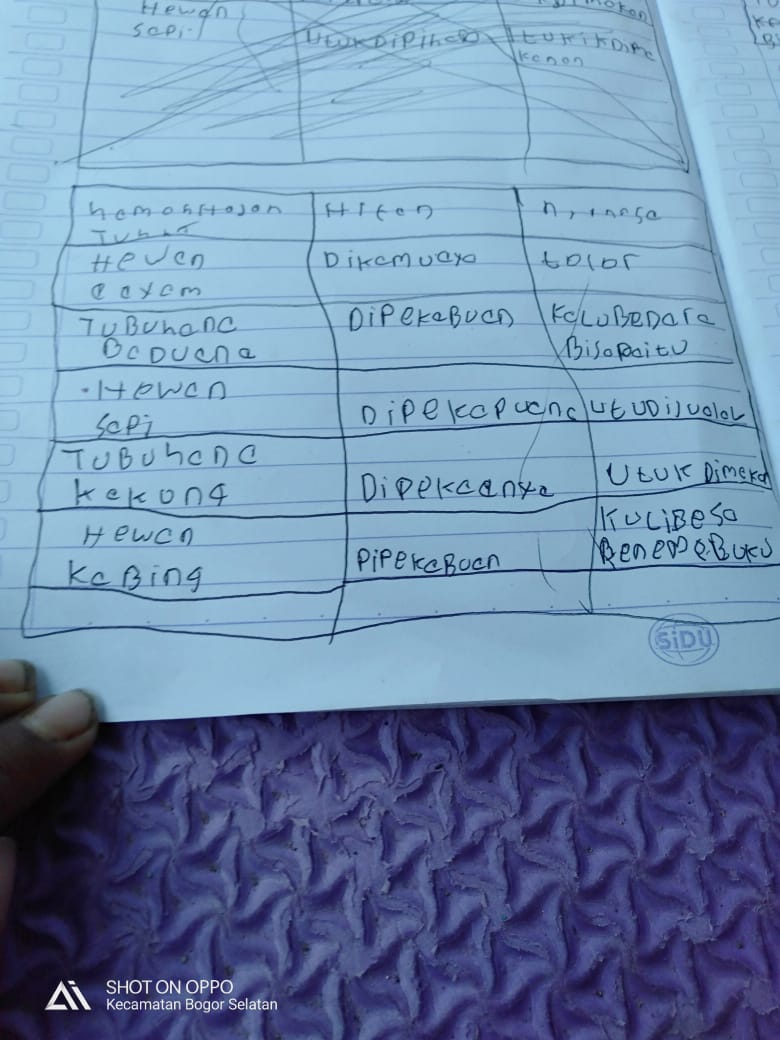 Hewan
Sapi.
UtukDiPihaa
ItukikDiPa
kanan
hamanHajan
Tuhn
Hiten
Hewan
aayam
Dikamuaya
tolor
TuBuhana
BaDuana
DiPekaBuan
KaluBenara
BisaPaitu
Hewan
Sapi
DiPekaPuana
UtuDijualal
TuBuhana
kakong
DiPekaanya
Utuk Dimaka
Hewan
KaBing
PiPekaBuan
KuliBesa
BeneDeBuku
SiDU
SHOT ON OPPO
Kecamatan Bogor Selatan